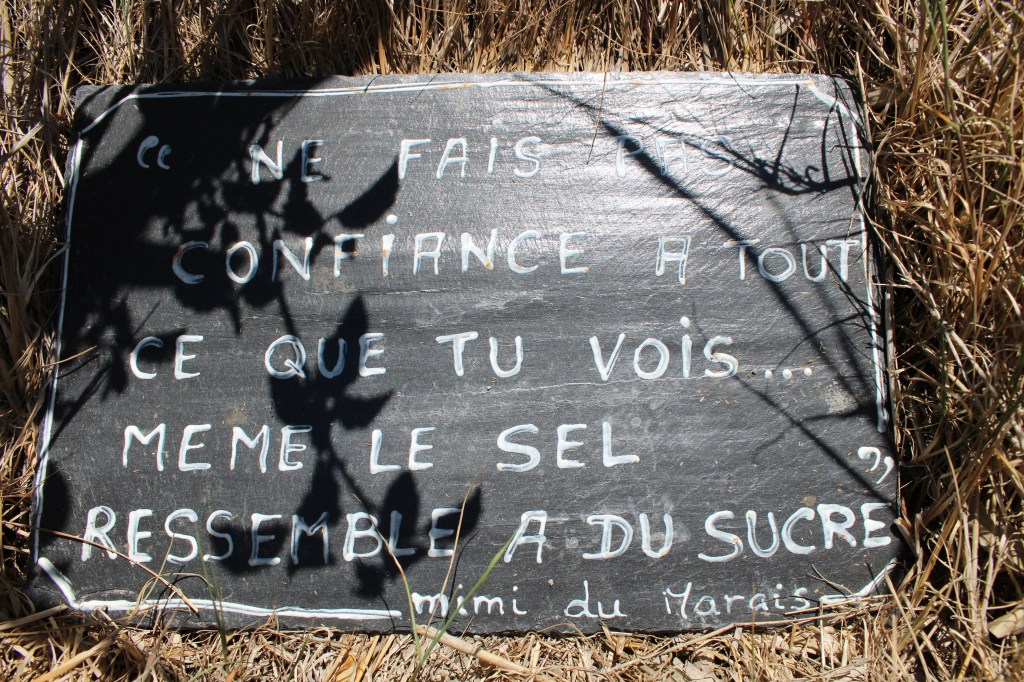 “ NE FAIS PAS
CONFiANCE A TOUT
CE QUE TU VOiS...
MEME LE SEL ”
RESSEMBLE A DU SUCRE
mimi du Marais